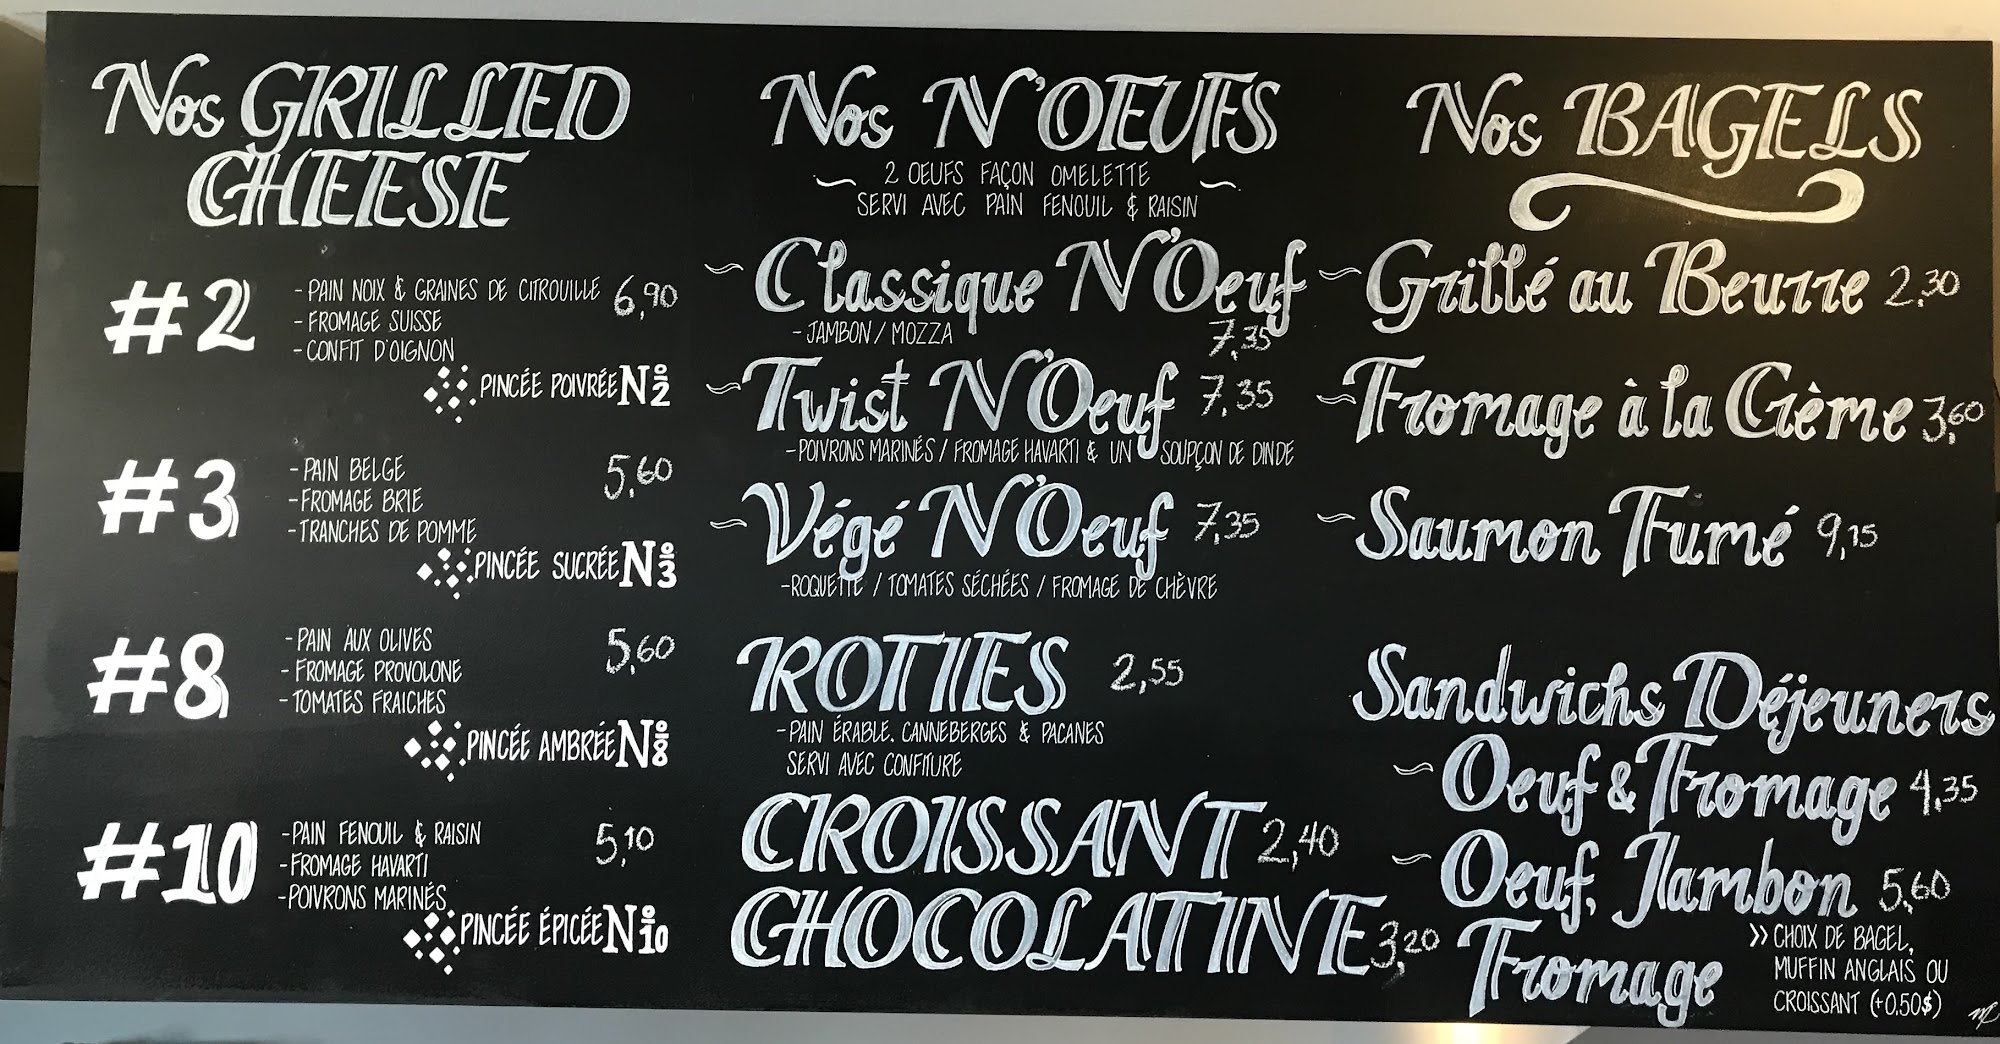 Nos GRILLED
CHEESE
#2
- PAIN NOIX & GRAINES DE CITROUILLE 6,90
- FROMAGE SUISSE
- CONFIT D'OIGNON
PINCÉE POIVRÉE Nº2
#3
- PAIN BELGE 5,60
- FROMAGE BRIE
- TRANCHES DE POMME
PINCÉE SUCRÉE Nº3
#8
- PAIN AUX OLIVES 5,60
- FROMAGE PROVOLONE
- TOMATES FRAICHES
PINCÉE AMBRÉE Nº8
#10
- PAIN FENOUIL & RAISIN 5,10
- FROMAGE HAVARTI
- POIVRONS MARINÉS
PINCÉE ÉPICÉE Nº10
Nos N'OEUFS
2 OEUFS FAÇON OMELETTE
SERVI AVEC PAIN FENOUIL & RAISIN
~ Classique N'Oeuf
- JAMBON / MOZZA 7,35
~ Twist N'Oeuf 7,35
- POIVRONS MARINÉS / FROMAGE HAVARTI & UN SOUPÇON DE DINDE
~ Végé N'Oeuf 7,35
- ROQUETTE / TOMATES SÉCHÉES / FROMAGE DE CHÈVRE
ROTIES 2,55
- PAIN ÉRABLE, CANNEBERGES & PACANES
SERVI AVEC CONFITURE
CROISSANT 2,40
CHOCOLATINE 3,20
Nos BAGELS
~ Grillé au Beurre 2,30
~ Fromage à la Crème 3,60
~ Saumon Fumé 9,15
Sandwichs Déjeuners
~ Oeuf & Fromage 4,35
~ Oeuf, Jambon 5,60
Fromage
>> CHOIX DE BAGEL,
MUFFIN ANGLAIS OU
CROISSANT (+0,50$)